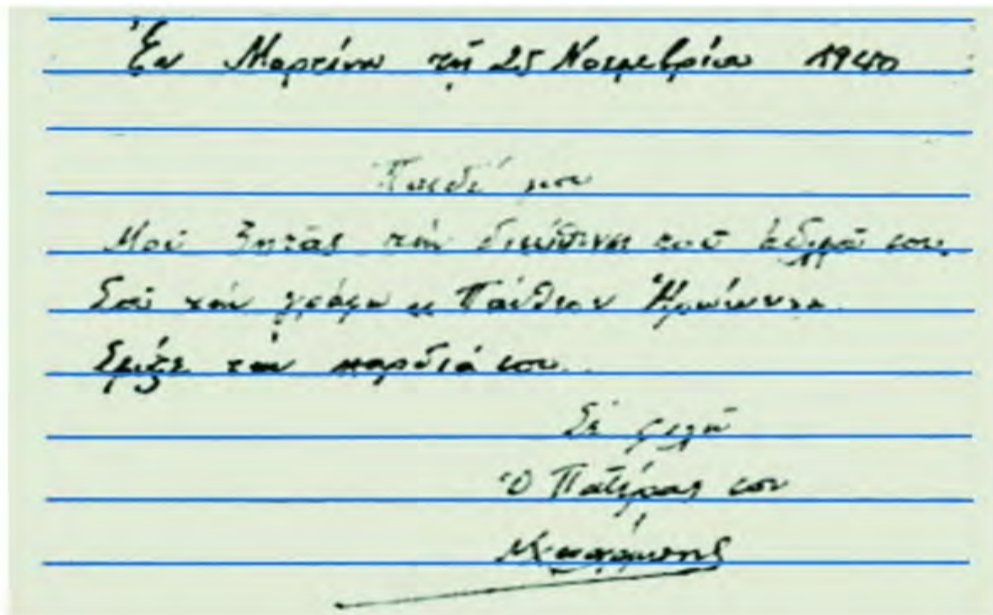 Ἐν Μαρτίνῳ τῇ 25 Νοεμβρίου 1940
Παιδί μου
Μοῦ ζητᾶς τὴν διεύθυνση τοῦ ἀδελφοῦ σου.
Σοῦ τὴν γράφω « Πάνθεον Ἡρώων».
Σφίξε τὴν καρδιά σου..
Σὲ φιλῶ
Ὁ Πατέρας σου